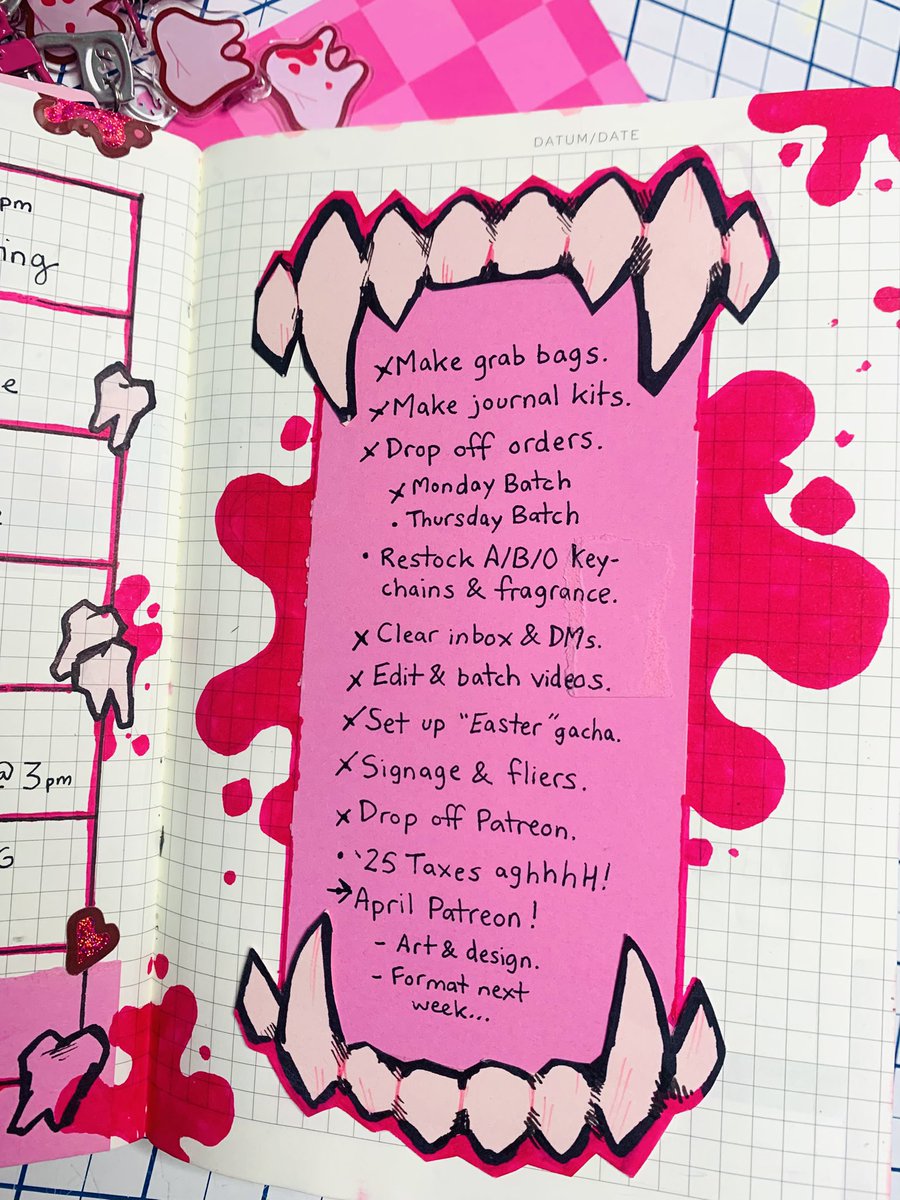 DATUM/DATE
pm
ing
e
@ 3pm
x Make grab bags.
x Make journal kits.
x Drop off orders.
x Monday Batch
• Thursday Batch
• Restock A/B/O Key-
chains & fragrance.
x Clear inbox & DMs.
x Edit & batch videos.
x Set up "Easter" gacha.
x Signage & fliers.
x Drop off Patreon.
• '25 Taxes aghhhH!
→ April Patreon!
- Art & design.
- Format next
week...